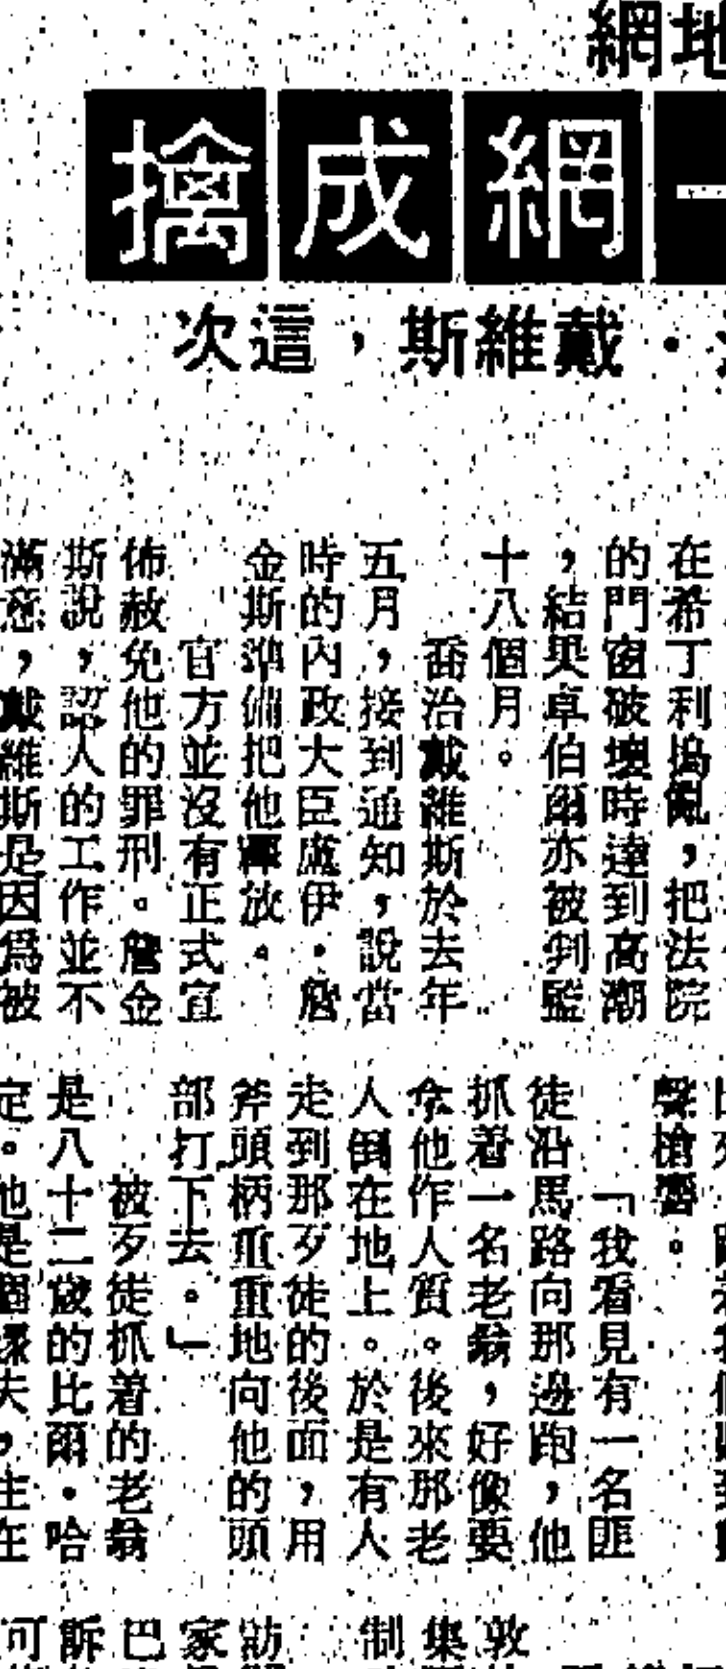 網地
擒成網一
次這，斯維戴・
在希丁利搗亂，把法院
的門窗破壞時達到高潮
，結果卓伯爾亦被判監
十八個月。
喬治戴維斯於去年
五月，接到通知，說當
時的內政大臣盧伊・詹
金斯準備把他釋放。
官方並沒有正式宣
佈赦免他的罪刑。詹金
斯說，認人的工作並不
滿意，戴維斯是因爲被
聲槍響。
「我看見有一名匪
徒沿馬路向那邊跑，他
抓着一名老翁，好像要
拿他作人質。後來那老
人倒在地上。於是有人
走到那歹徒的後面，用
斧頭柄重重地向他的頭
部打下去。」
被歹徒抓着的老翁
是八十二歲的比爾・哈
定。他是個鰥夫，住在
敦
集
制
訪
家
巴
訴
可